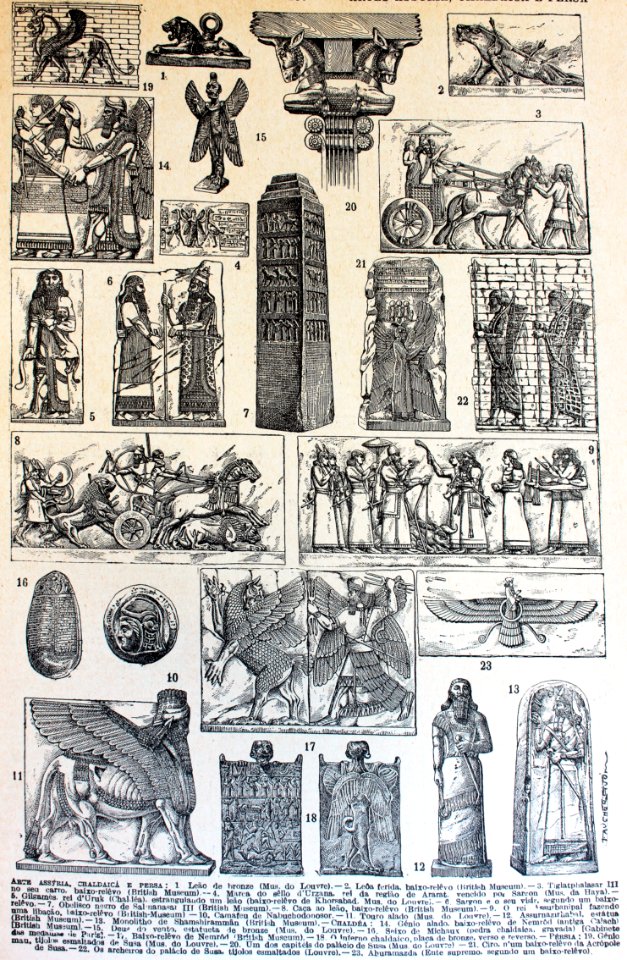 ARTE ASSÍRIA, CHALDAICA E PERSA
19
1
2
3
14
15
20
4
6
21
5
7
22
8
9
16
10
23
11
17
18
13
12
ARTE ASSÍRIA, CHALDAICA E PERSA: 1 Leão de bronze (Mus. do Louvre). — 2. Leôa ferida, baixo-relêvo (British Museum). — 3. Tiglatphalasar III
no seu carro, baixo-relêvo (British Museum). — 4. Marca do sêllo d'Urzana, rei da região de Ararat, vencido por Sargon (Mus. da Haya). —
5. Gilgamés, rei d'Uruk (Chaldêa), estrangulando um leão (baixo-relêvo de Khorsabad, Mus. do Louvre). — 6. Sargon e o seu vizir, segundo um baixo-
relêvo. — 7. Obelisco negro de Salmanasar III (British Museum). — 8. Caça ao leão, baixo-relêvo (British Museum). — 9. O rei Assurbanipal fazendo
uma libação, baixo-relêvo (British Museum). — 10. Camafeu de Nabuchodonosor. — 11. Touro alado (Mus. do Louvre). — 12. Assurnazirbal, estatua
(British Museum). — 13. Monolitho de Shamshiramman (British Museum). — CHALDÊA: 14. Génio alado baixo-relêvo de Nemrod (antiga Calach)
[British Museum]. — 15. Deus do vento, estatueta de bronze (Mus. do Louvre). — 16. Seixo de Michaux (pedra chaldaica, gravada) [Gabinete
das medalhas de Paris]. — 17. Baixo-relêvo de Nemrod (British Museum). — 18. O inferno chaldaico, placa de bronze, verso e reverso. — PERSIA: 19. Génio
mau, tijolos esmaltados de Susa (Mus. do Louvre). — 20. Um dos capiteis do palacio de Susa (Mus. do Louvre). — 21. Ciro, n'um baixo-relêvo da Acrópole
de Susa. — 22. Os archeiros do palácio de Susa, tijolos esmaltados (Louvre). — 23. Ahuramazda (Ente supremo, segundo um baixo-relêvo).